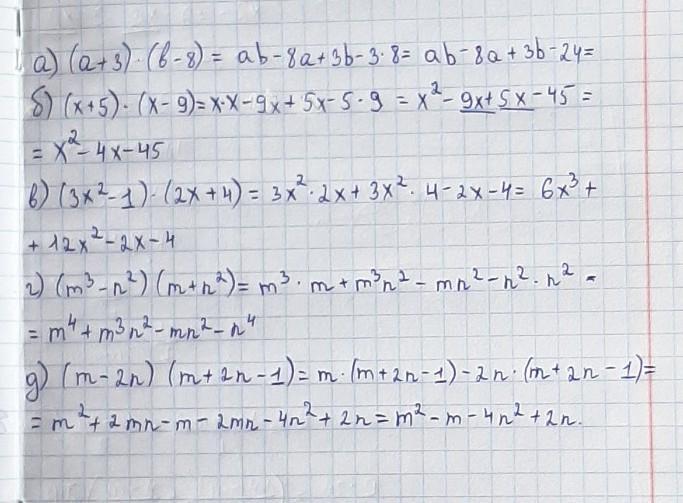 а) (a+3)·(b-8) = ab-8a+3b-3·8= ab-8a+3b-24=
б) (x+5)·(x-9)=x·x-9x+5x-5·9 = x²-9x+5x-45=
= x²-4x-45
в) (3x²-1)·(2x+4)= 3x²·2x+3x²·4-2x-4= 6x³+
+12x²-2x-4
г) (m³-n²)(m+n²)= m³·m+m³n²-mn²-n²·n² =
= m⁴+m³n²-mn²-n⁴
д) (m-2n)(m+2n-1)=m·(m+2n-1)-2n·(m+2n-1)=
= m²+2mn-m-2mn-4n²+2n=m²-m-4n²+2n.